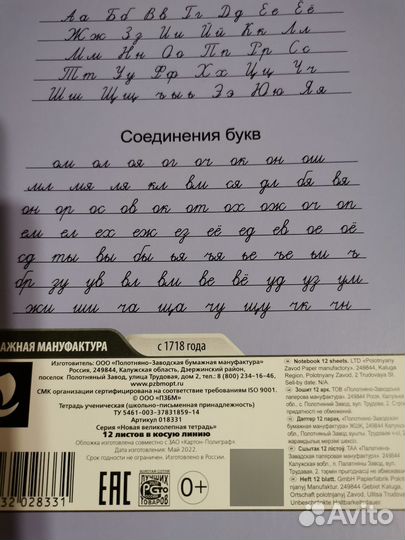 Аа Бб Вв Гг Дд Ее Ёё
Жж Зз Ии Йй Кк Лл
Мм Нн Оо Пп Рр Сс
Тт Уу Фф Хх Цц Чч
Шш Щщ ъыь Ээ Юю Яя
Соединения букв
ом ол оя ог оч ок он ош
мл мя ля кл вм ся дл бя вя
он ор ос ов ок от ох ож оч оп
ем ел ех еж ез её ед ев ое оё
сд ты вы бы ья ъя ье ъе ьи ъ
бр зу ув вл вм ве вё уд уз ум
жи ши ча ща чу щу чк чн
АЖНАЯ МАНУФАКТУРА с 1718 года
Изготовитель: ООО «Полотняно-Заводская бумажная мануфактура»
Россия, 249844, Калужская область, Дзержинский район,
поселок Полотняный Завод, улица Трудовая, дом 2, тел. 8 (800) 234-16-46,
www.pzbmopt.ru
СМК организации сертифицирована на соответствие требованиям ISO 9001.
© ООО «ПЗБМ»
Тетрадь ученическая (школьно-письменная принадлежность)
ТУ 5461-003-37831859-14
Артикул 018331
Серия «Новая великолепная тетрадь»
12 листов в косую линию
Обложка изготовлена совместно с ЗАО «Картон-Полиграф».
Дата изготовления: Май 2022.
Срок годности не ограничен. Изготовлено в России.
32 028331
ЕАС
ЛУЧШИХ
0+
Notebook 12 sheets. LTD «Polotnyany
Zavod Paper manufactory», 249844, Kaluga
Region, Polotnyany Zavod, 2 Trudovaya St.
Sell-by date: N/A.
Зошит 12 арк. ТОВ «Полотняно-Заводська
паперова мануфактура». Росія, 249844,
Калузька обл., сел. Полотняний
Завод, вул. Трудова, 2.
обмежений.
Дәптер 12 парақ.
249844,
Сшытак 12 лістоў. ТАА
249844
Калужская вобл., п. Палатняны Завод, вул. Працоўная, 2.
Heft 12 blatt. GmbH Papierfabrik Polotnyanyj
Manufaktur, 249844 Gebiet Kaluga,
Ortschaft polotnyanyj Zavod, Uliisa Trudovaya
Unbeschränkte Haltbarkeit
Avito